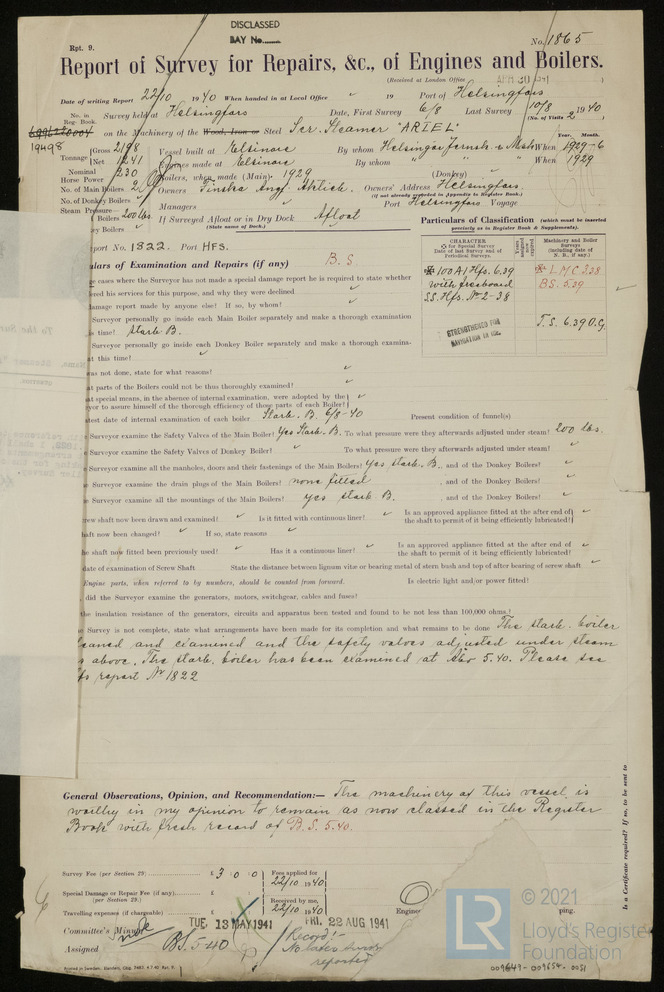 DISCLASSED
BAY No.
Rpt. 9.
No. 1865
Report of Survey for Repairs, &c., of Engines and Boilers.
(Received at London Office
Date of writing Report 22/10 1940 When handed in at Local Office " 19 Port of Helsingfors
No. in Reg. Book. Survey held at Helsingfors Date, First Survey 6/8 Last Survey 10/8 1940
(No. of Visits 2)
19498 on the Machinery of the Wood, Iron or Steel Scr. Steamer "ARIEL"
Year. Month.
Tonnage Gross 2198 Vessel built at Elsinore By whom When 1929-6
Net 1241 Engines made at Elsinore By whom " When 1929
Nominal Horse Power 230 Boilers, when made (Main) 1929 (Donkey) "
No. of Main Boilers 2 Owners Owners' Address Helsingfors
(if not already recorded in Appendix to Register Book.)
No. of Donkey Boilers Managers Port Helsingfors Voyage
Steam Pressure
Boilers 200 lbs. If Surveyed Afloat or in Dry Dock Afloat
(State name of Dock.)
ey Boilers
Particulars of Classification (which must be inserted
precisely as in Register Book & Supplements).
port No. 1822. Port HFS.
CHARACTER
for Special Survey
Date of last Survey and of
Periodical Surveys.
Machinery and Boiler
Surveys
(including date of
N. B., if any.)
ulars of Examination and Repairs (if any) B.S.
100A1 Hfs. 6.39
with freeboard
S.S. Hfs. No 2-38
LMC 3.38
BS. 5.39
T.S. 6.39 O.G.
STRENGTHENED FOR
NAVIGATION IN ICE.
ge cases where the Surveyor has not made a special damage report he is required to state whether
ered his services for this purpose, and why they were declined
damage report made by anyone else? If so, by whom?
Surveyor personally go inside each Main Boiler separately and make a thorough examination
is time? Starb B.
Surveyor personally go inside each Donkey Boiler separately and make a thorough examina-
at this time?
was not done, state for what reasons?
at parts of the Boilers could not be thus thoroughly examined?
at special means, in the absence of internal examination, were adopted by the
eyor to assure himself of the thorough efficiency of those parts of each Boiler?
atest date of internal examination of each boiler Starb. B. 6/8-40 Present condition of funnel(s)
e Surveyor examine the Safety Valves of the Main Boiler? Yes Starb. B. To what pressure were they afterwards adjusted under steam? 200 lbs.
e Surveyor examine the Safety Valves of Donkey Boiler? To what pressure were they afterwards adjusted under steam?
e Surveyor examine all the manholes, doors and their fastenings of the Main Boilers? Yes starb. B., and of the Donkey Boilers?
e Surveyor examine the drain plugs of the Main Boilers? none fitted, and of the Donkey Boilers?
e Surveyor examine all the mountings of the Main Boilers? yes starb B., and of the Donkey Boilers?
rew shaft now been drawn and examined? Is it fitted with continuous liner? Is an approved appliance fitted at the after end of
the shaft to permit of it being efficiently lubricated?
haft now been changed? If so, state reasons
he shaft now fitted been previously used? Has it a continuous liner? Is an approved appliance fitted at the after end of
the shaft to permit of it being efficiently lubricated?
date of examination of Screw Shaft State the distance between lignum vitæ or bearing metal of stern bush and top of after bearing of screw shaft
Engine parts, when referred to by numbers, should be counted from forward. Is electric light and/or power fitted?
did the Surveyor examine the generators, motors, switchgear, cables and fuses?
the insulation resistance of the generators, circuits and apparatus been tested and found to be not less than 100,000 ohms?
e Survey is not complete, state what arrangements have been made for its completion and what remains to be done The starb. boiler
eaned and examined and the safety valves adjusted under steam
s above. The starb. boiler has been examined at Åbo 5.40. Please see
fs report No 1822
General Observations, Opinion, and Recommendation:— The machinery of this vessel is
worthy in my opinion to remain as now classed in the Register
Book with fresh record of B.S. 5.40.
Is a Certificate required? If so, to be sent to
Survey Fee (per Section 29) £ 3 0 0 Fees applied for 22/10 1940
Special Damage or Repair Fee (if any) £
(per Section 29.)
Received by me, 22/10 1940
Travelling expenses (if chargeable) £
Engine
ping.
Committee's Minute TUE. 13 MAY 1941 FRI. 22 AUG 1941
Assigned BS. 5.40
Record:-
No later Survey
reported
Printed in Sweden.
© 2021
LR
Lloyd's Register
Foundation
009649-009654-0051